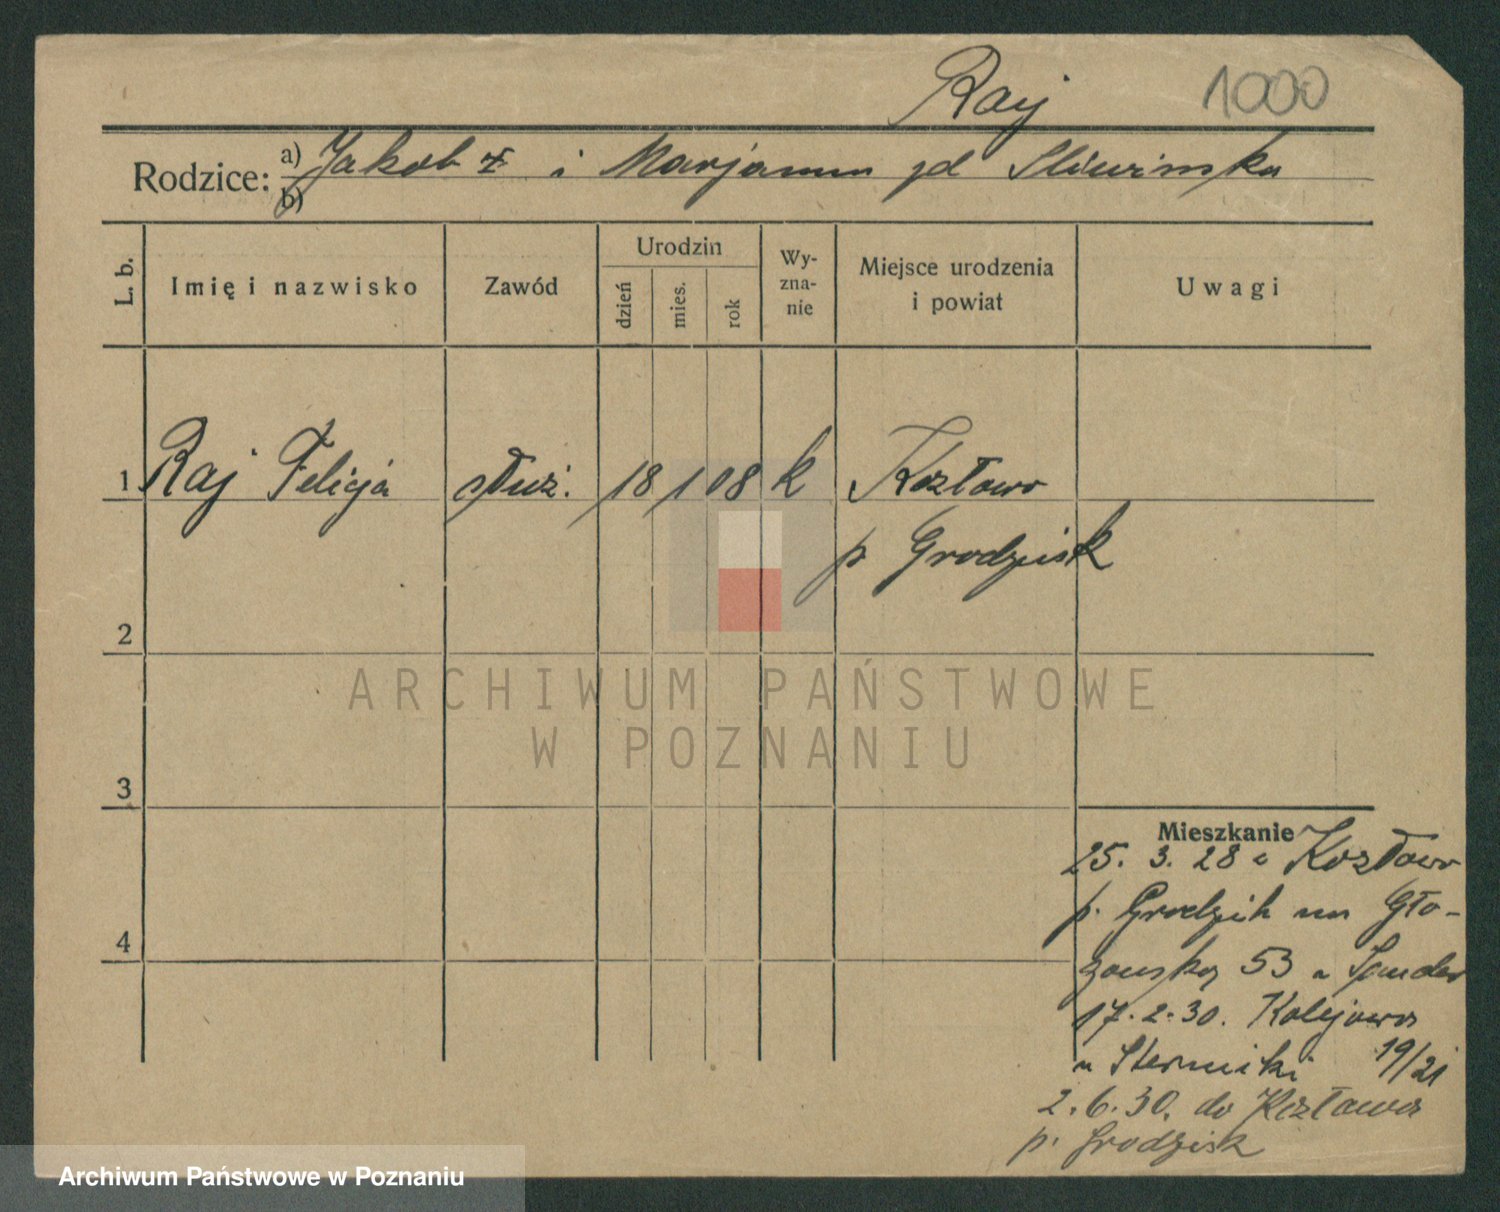 Raj 1000
Rodzice: a) Jakob i Marjanna zd Sliwinska
b)
L. b. Imię i nazwisko Zawód Urodzin dzień mies. rok Wy-zna-nie Miejsce urodzenia i powiat Uwagi
1 Raj Felicja służ. 18 1 08 k Kozłowo
p Grodzisk
2
ARCHIWUM PAŃSTWOWE
W POZNANIU
3
Mieszkanie
25. 3. 28 z Kozłowo
p. Grodzisk na Gło-
gowską 53 u
17. 2. 30. Kolejowa
u 19/21
2. 6. 30. do Kozłowa
p. Grodzisk
4
Archiwum Państwowe w Poznaniu